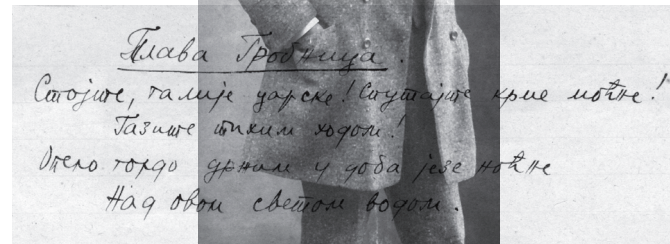 Плава Гробница.
Стојте, галије царске! Спутајте крме моћне!
Газите тихим ходом!
Опело гордо држим у доба језе ноћне
Над овом светом водом.